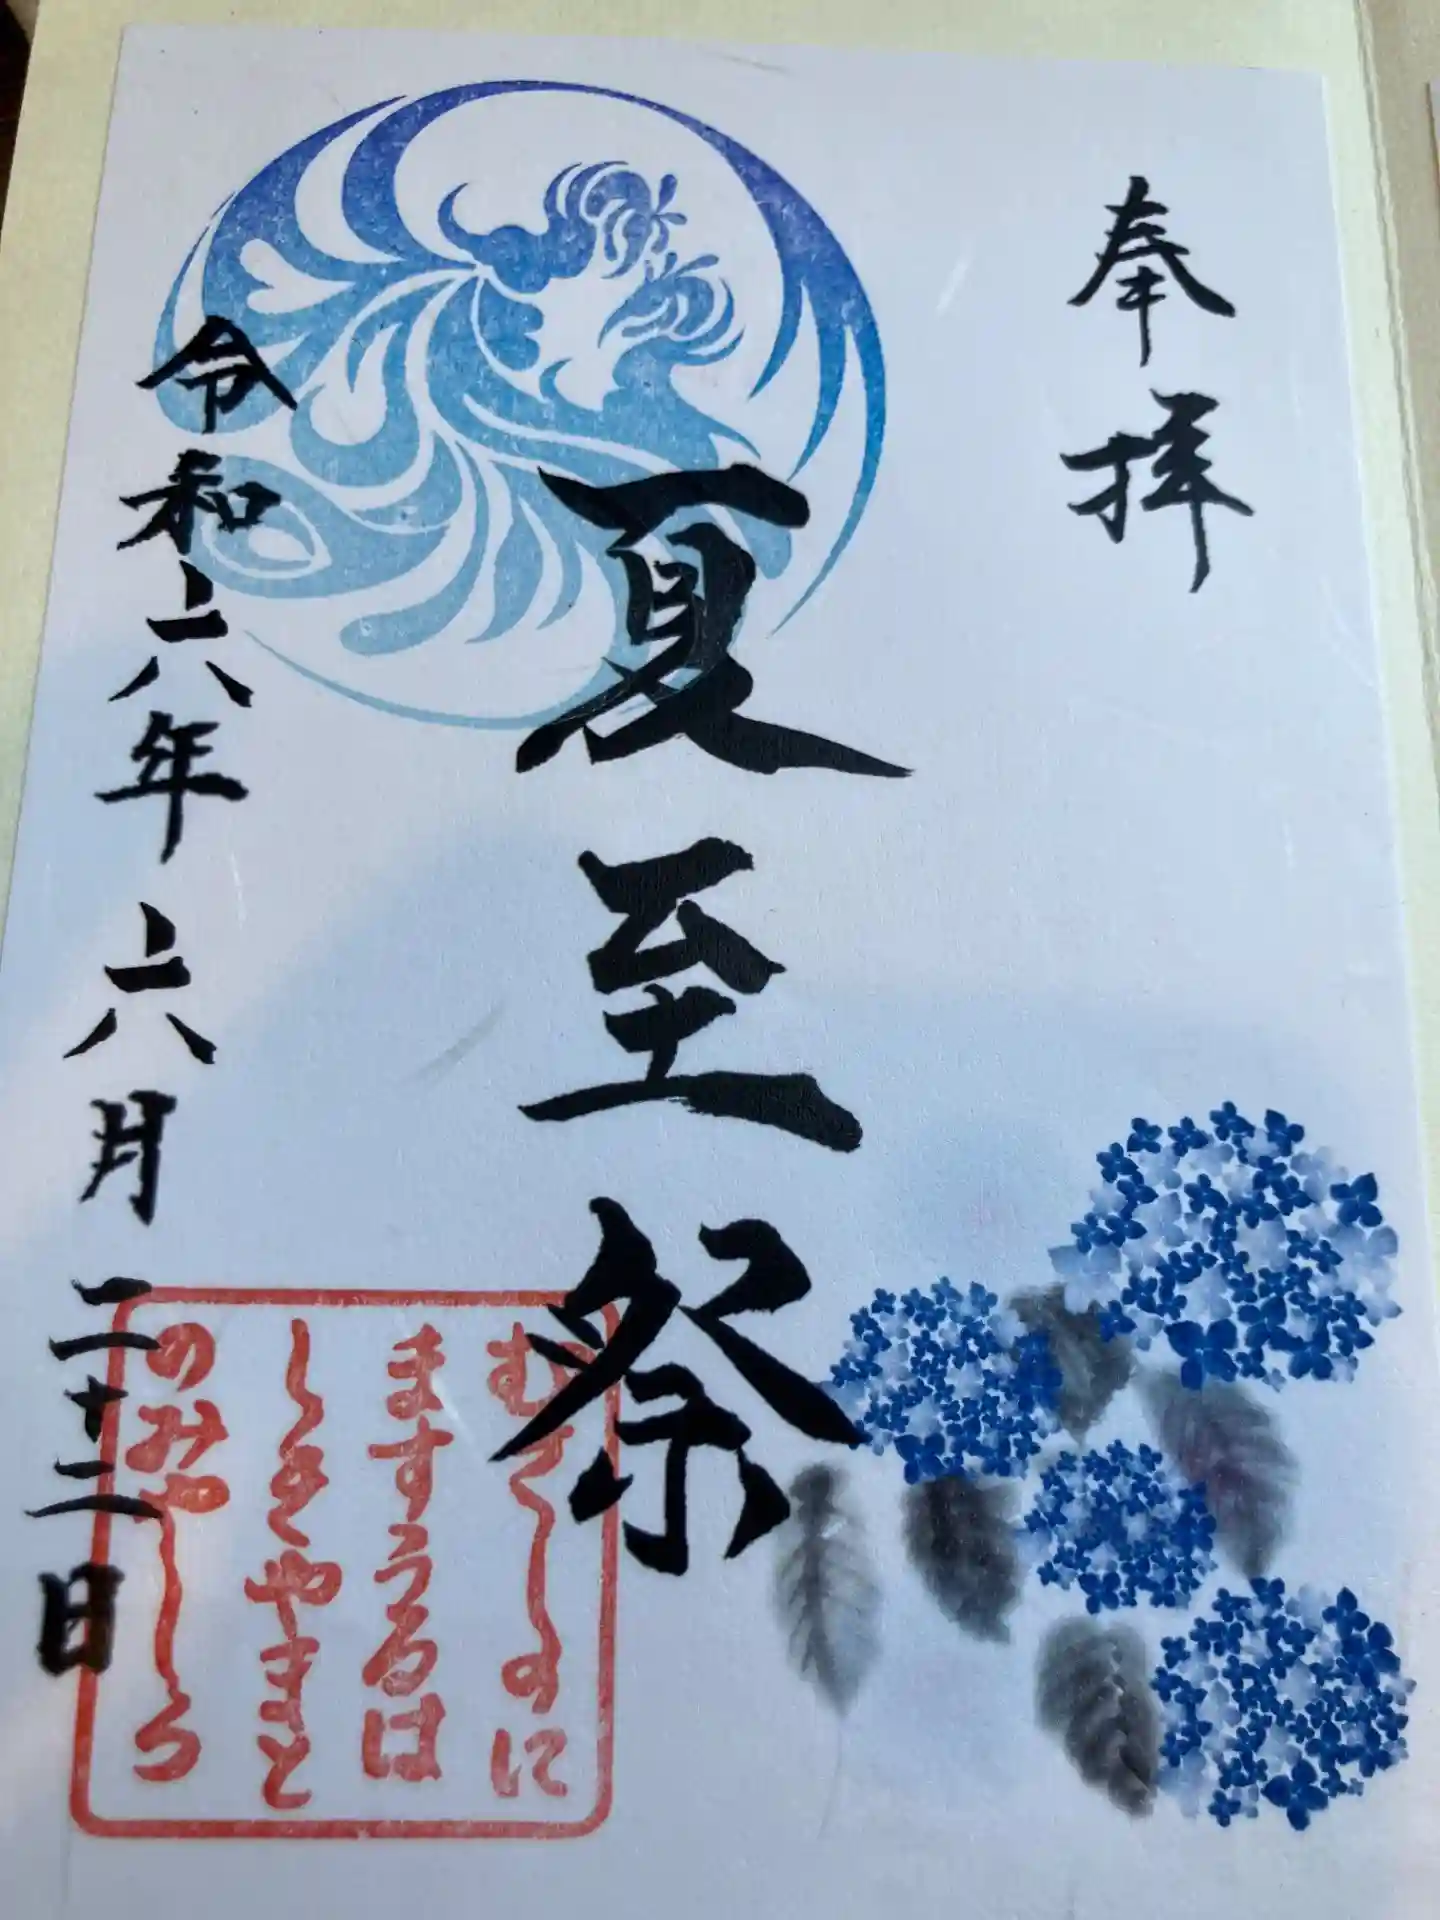 奉拝
夏至祭
令和六年六月二十二日
むさしのに
ますうるは
しきやまと
のみやしろ